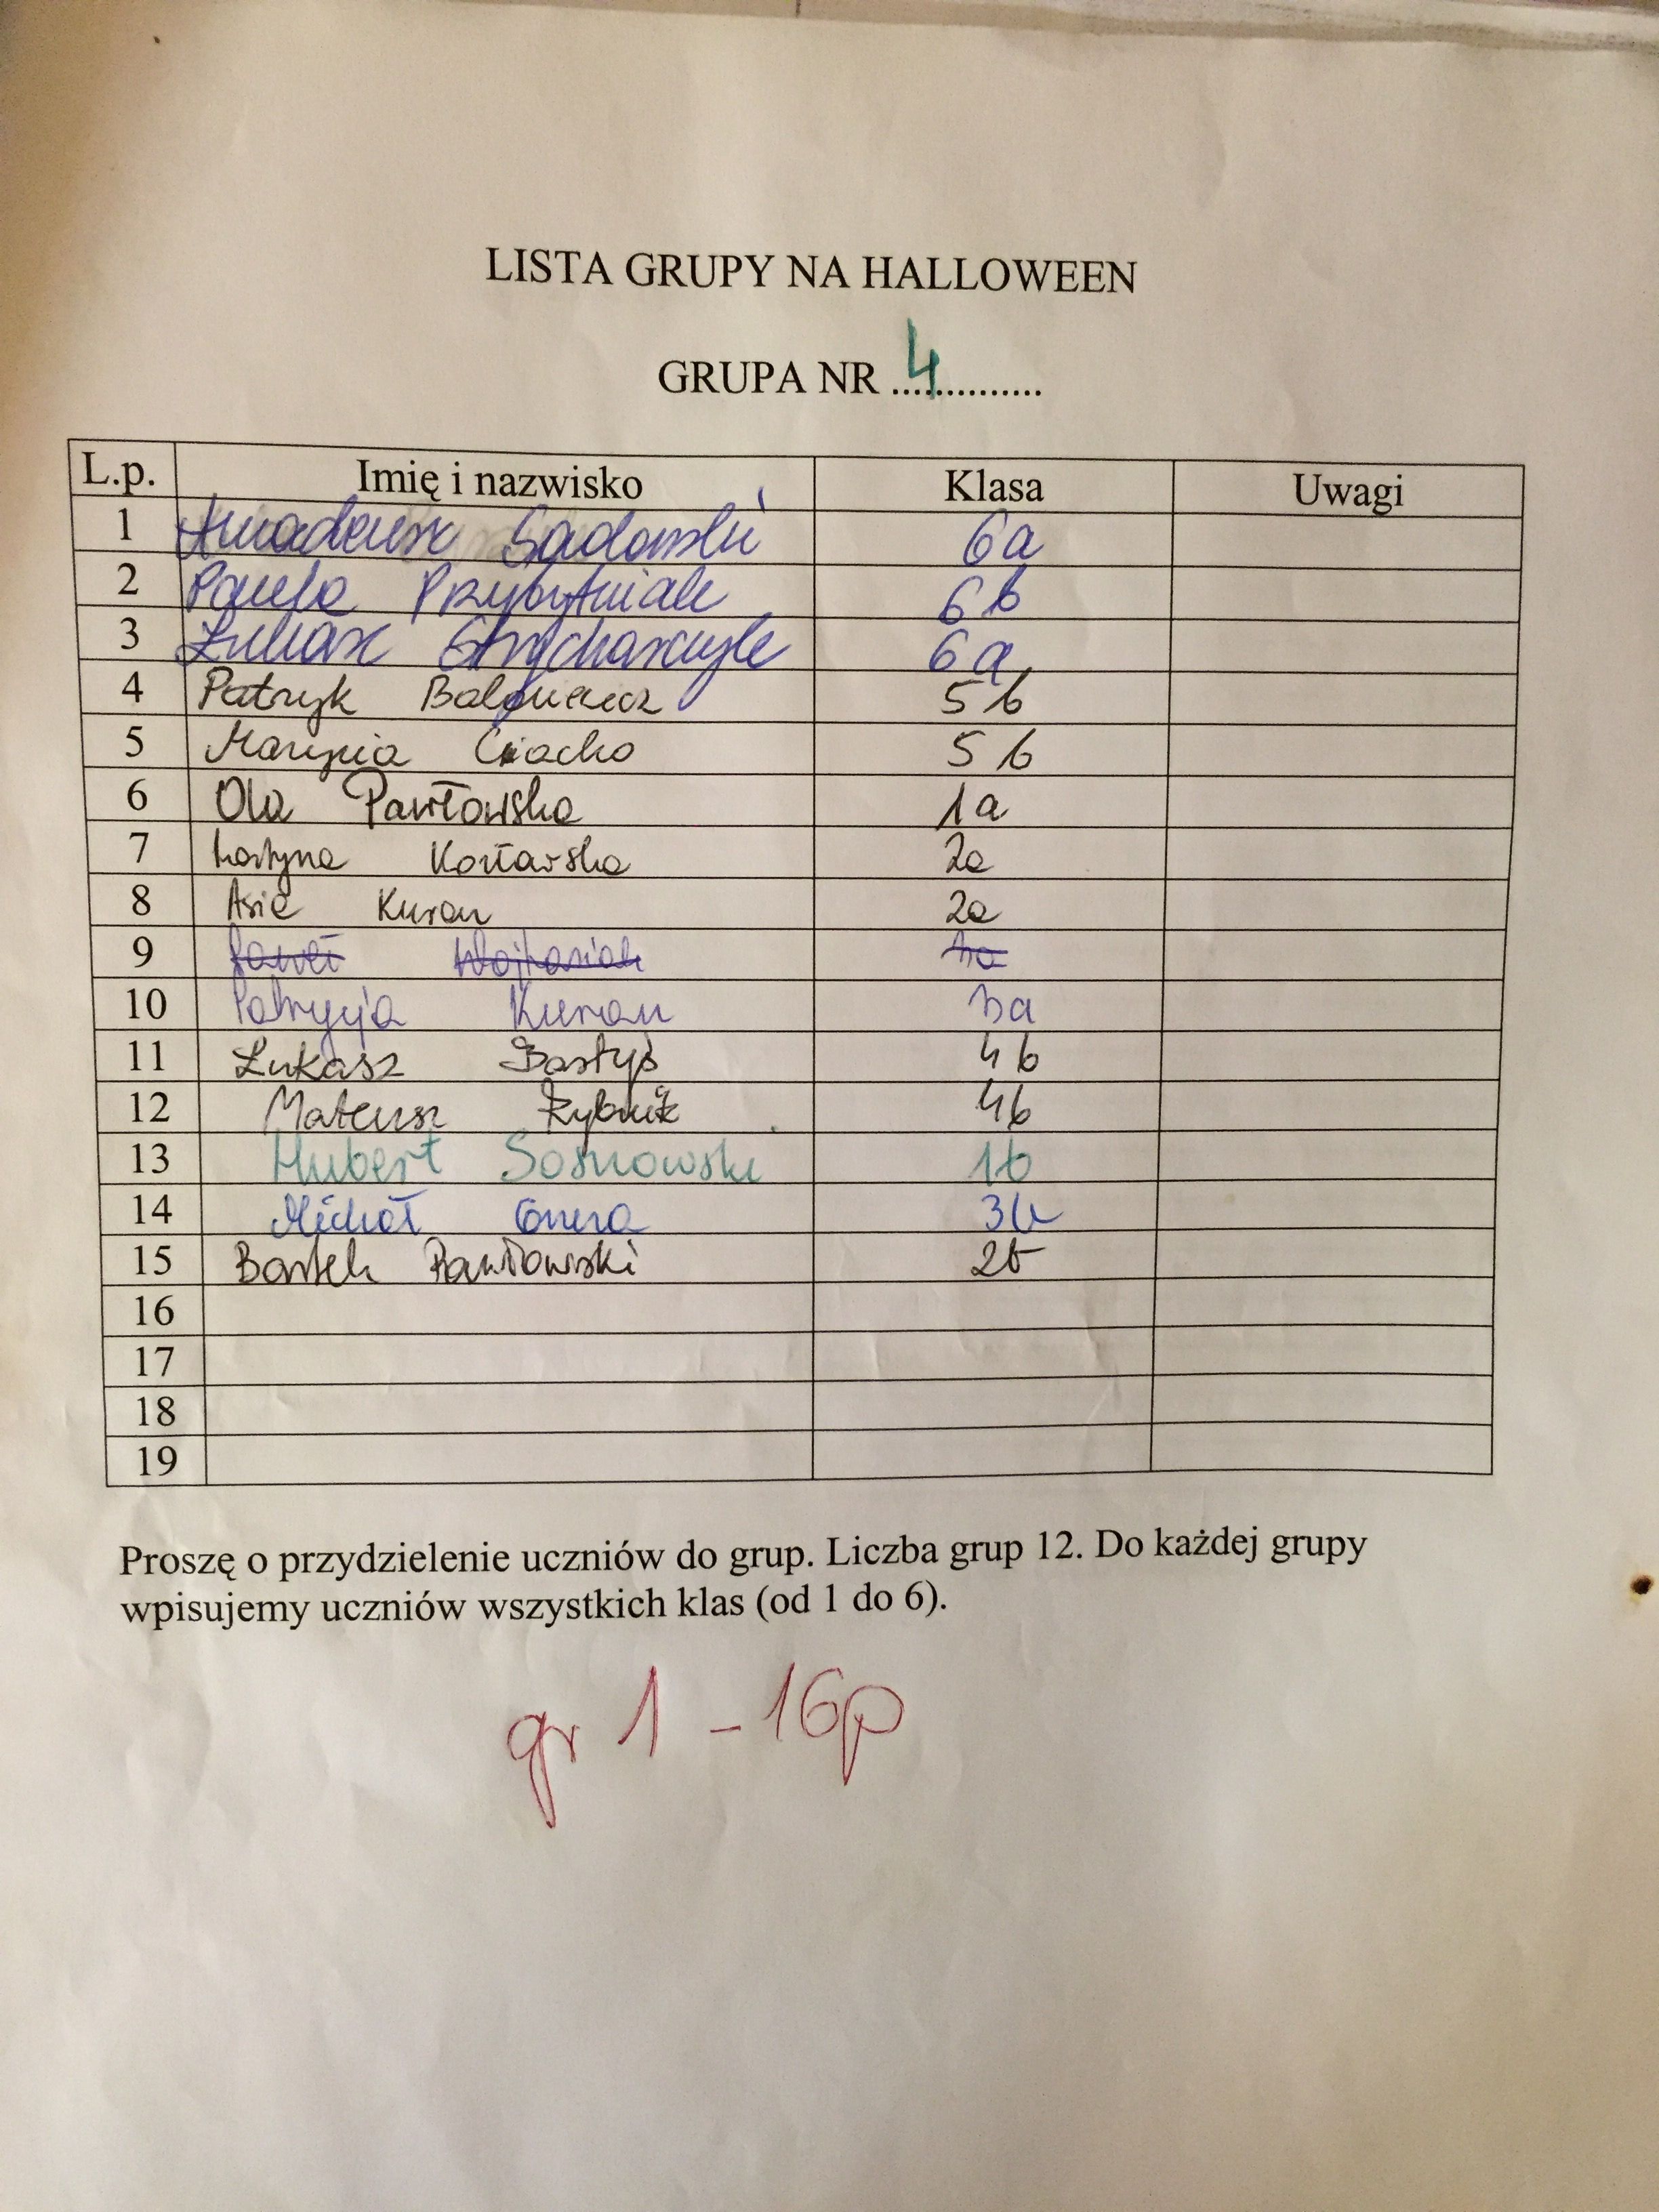 LISTA GRUPY NA HALLOWEEN
GRUPA NR 4..............
L.p. Imię i nazwisko Klasa Uwagi
1 Amadeusz Sadowski 6a
2 Paula Przybytniak 6b
3 Łukasz Strycharczyk 6a
4 Patryk 5b
5 Marysia Ciacho 5b
6 Ola Pawłowska 1a
7 Kozłowska 2a
8 Asia Kuran 2a
9 Paweł Wojtasiak
10 Patrycja Kuran 3a
11 Łukasz Bastyś 4b
12 Mateusz 4b
13 Hubert Sosnowski 1b
14 Michał Gnera 3b
15 Bartek Pawłowski 2b
16
17
18
19
Proszę o przydzielenie uczniów do grup. Liczba grup 12. Do każdej grupy
wpisujemy uczniów wszystkich klas (od 1 do 6).
gr 1 - 16p